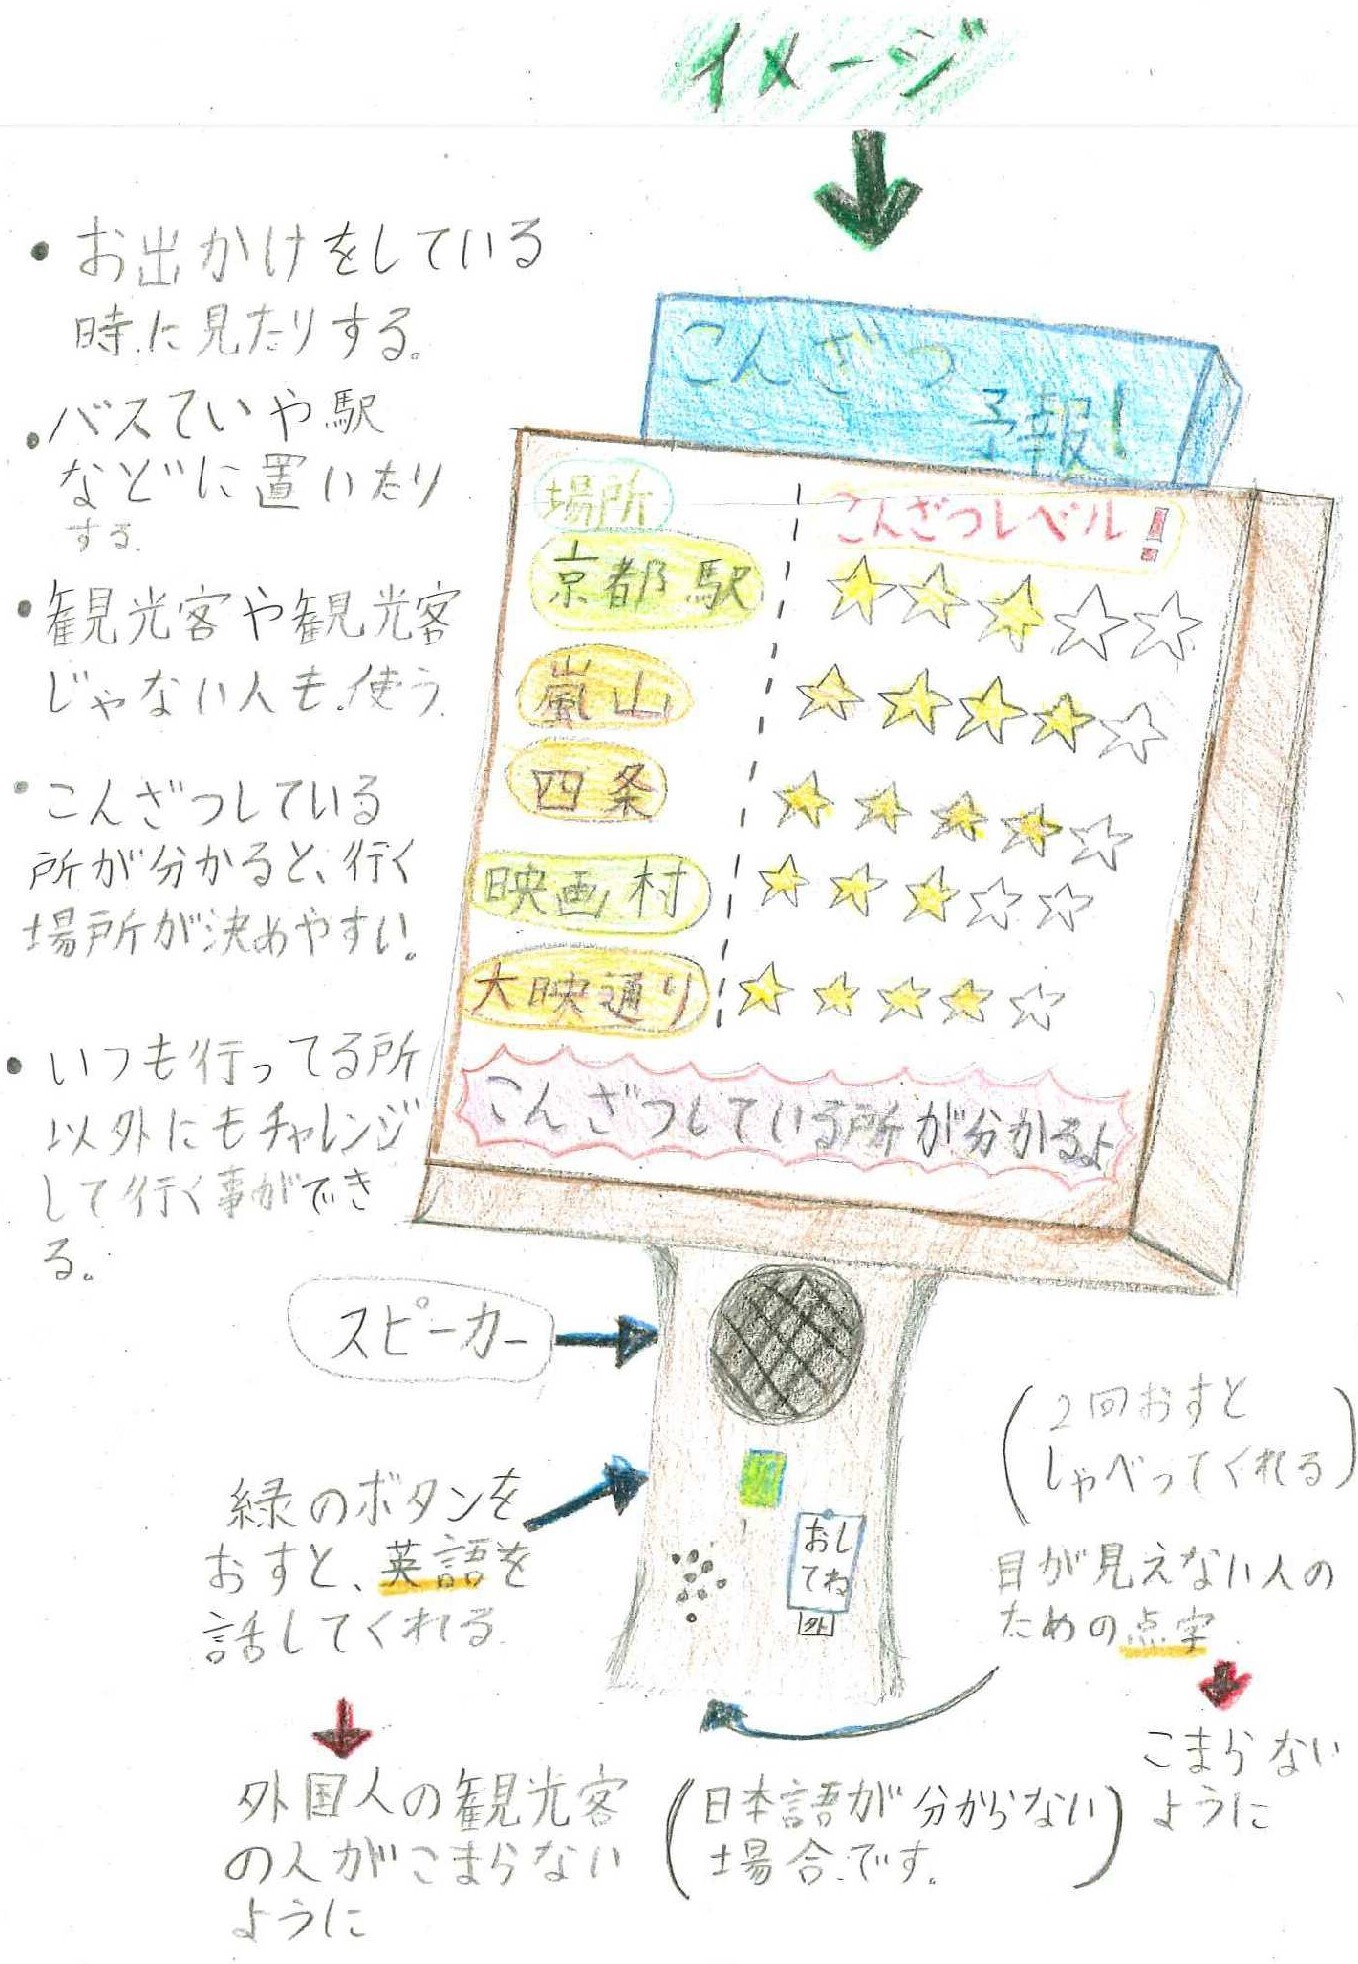 イメージ
・お出かけをしている
時に見たりする。
・バスていや駅
などに置いたり
する.
・観光客や観光客
じゃない人も使う.
・こんざつしている
所が分かると、行く
場所が決めやすい。
・いつも行ってる所
以外にもチャレンジ
して行く事ができ
る。
こんざつ
予報!
場所
こんざつレベル!
京都駅
☆☆☆☆☆
嵐山
☆☆☆☆☆
四条
☆☆☆☆☆
映画村
☆☆☆☆☆
大映通り
☆☆☆☆☆
こんざつしている所が分かるよ
スピーカー
緑のボタンを
おすと、英語を
話してくれる.
外国人の観光客
の人がこまらない
ように
おし
てね
外
(2回おすと
しゃべってくれる)
目が見えない人の
ための点字.
こまらない
ように
(日本語が分からない
場合です。)